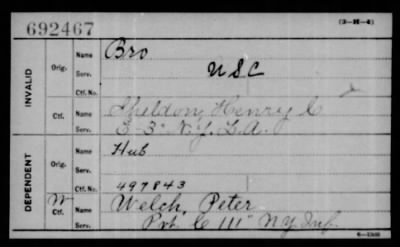 692467
(3-H-4)
INVALID
Orig. Name Bro
Serv. USC
Ctf. No.
Ctf. Name Sheldon, Henry C
Serv. 3-3" N.Y. L.A.
DEPENDENT
Orig. Name Hub
Serv.
Ctf. No. 497843
W Ctf. Name Welch, Peter
Serv. Pvt. C 111" NY Inf.